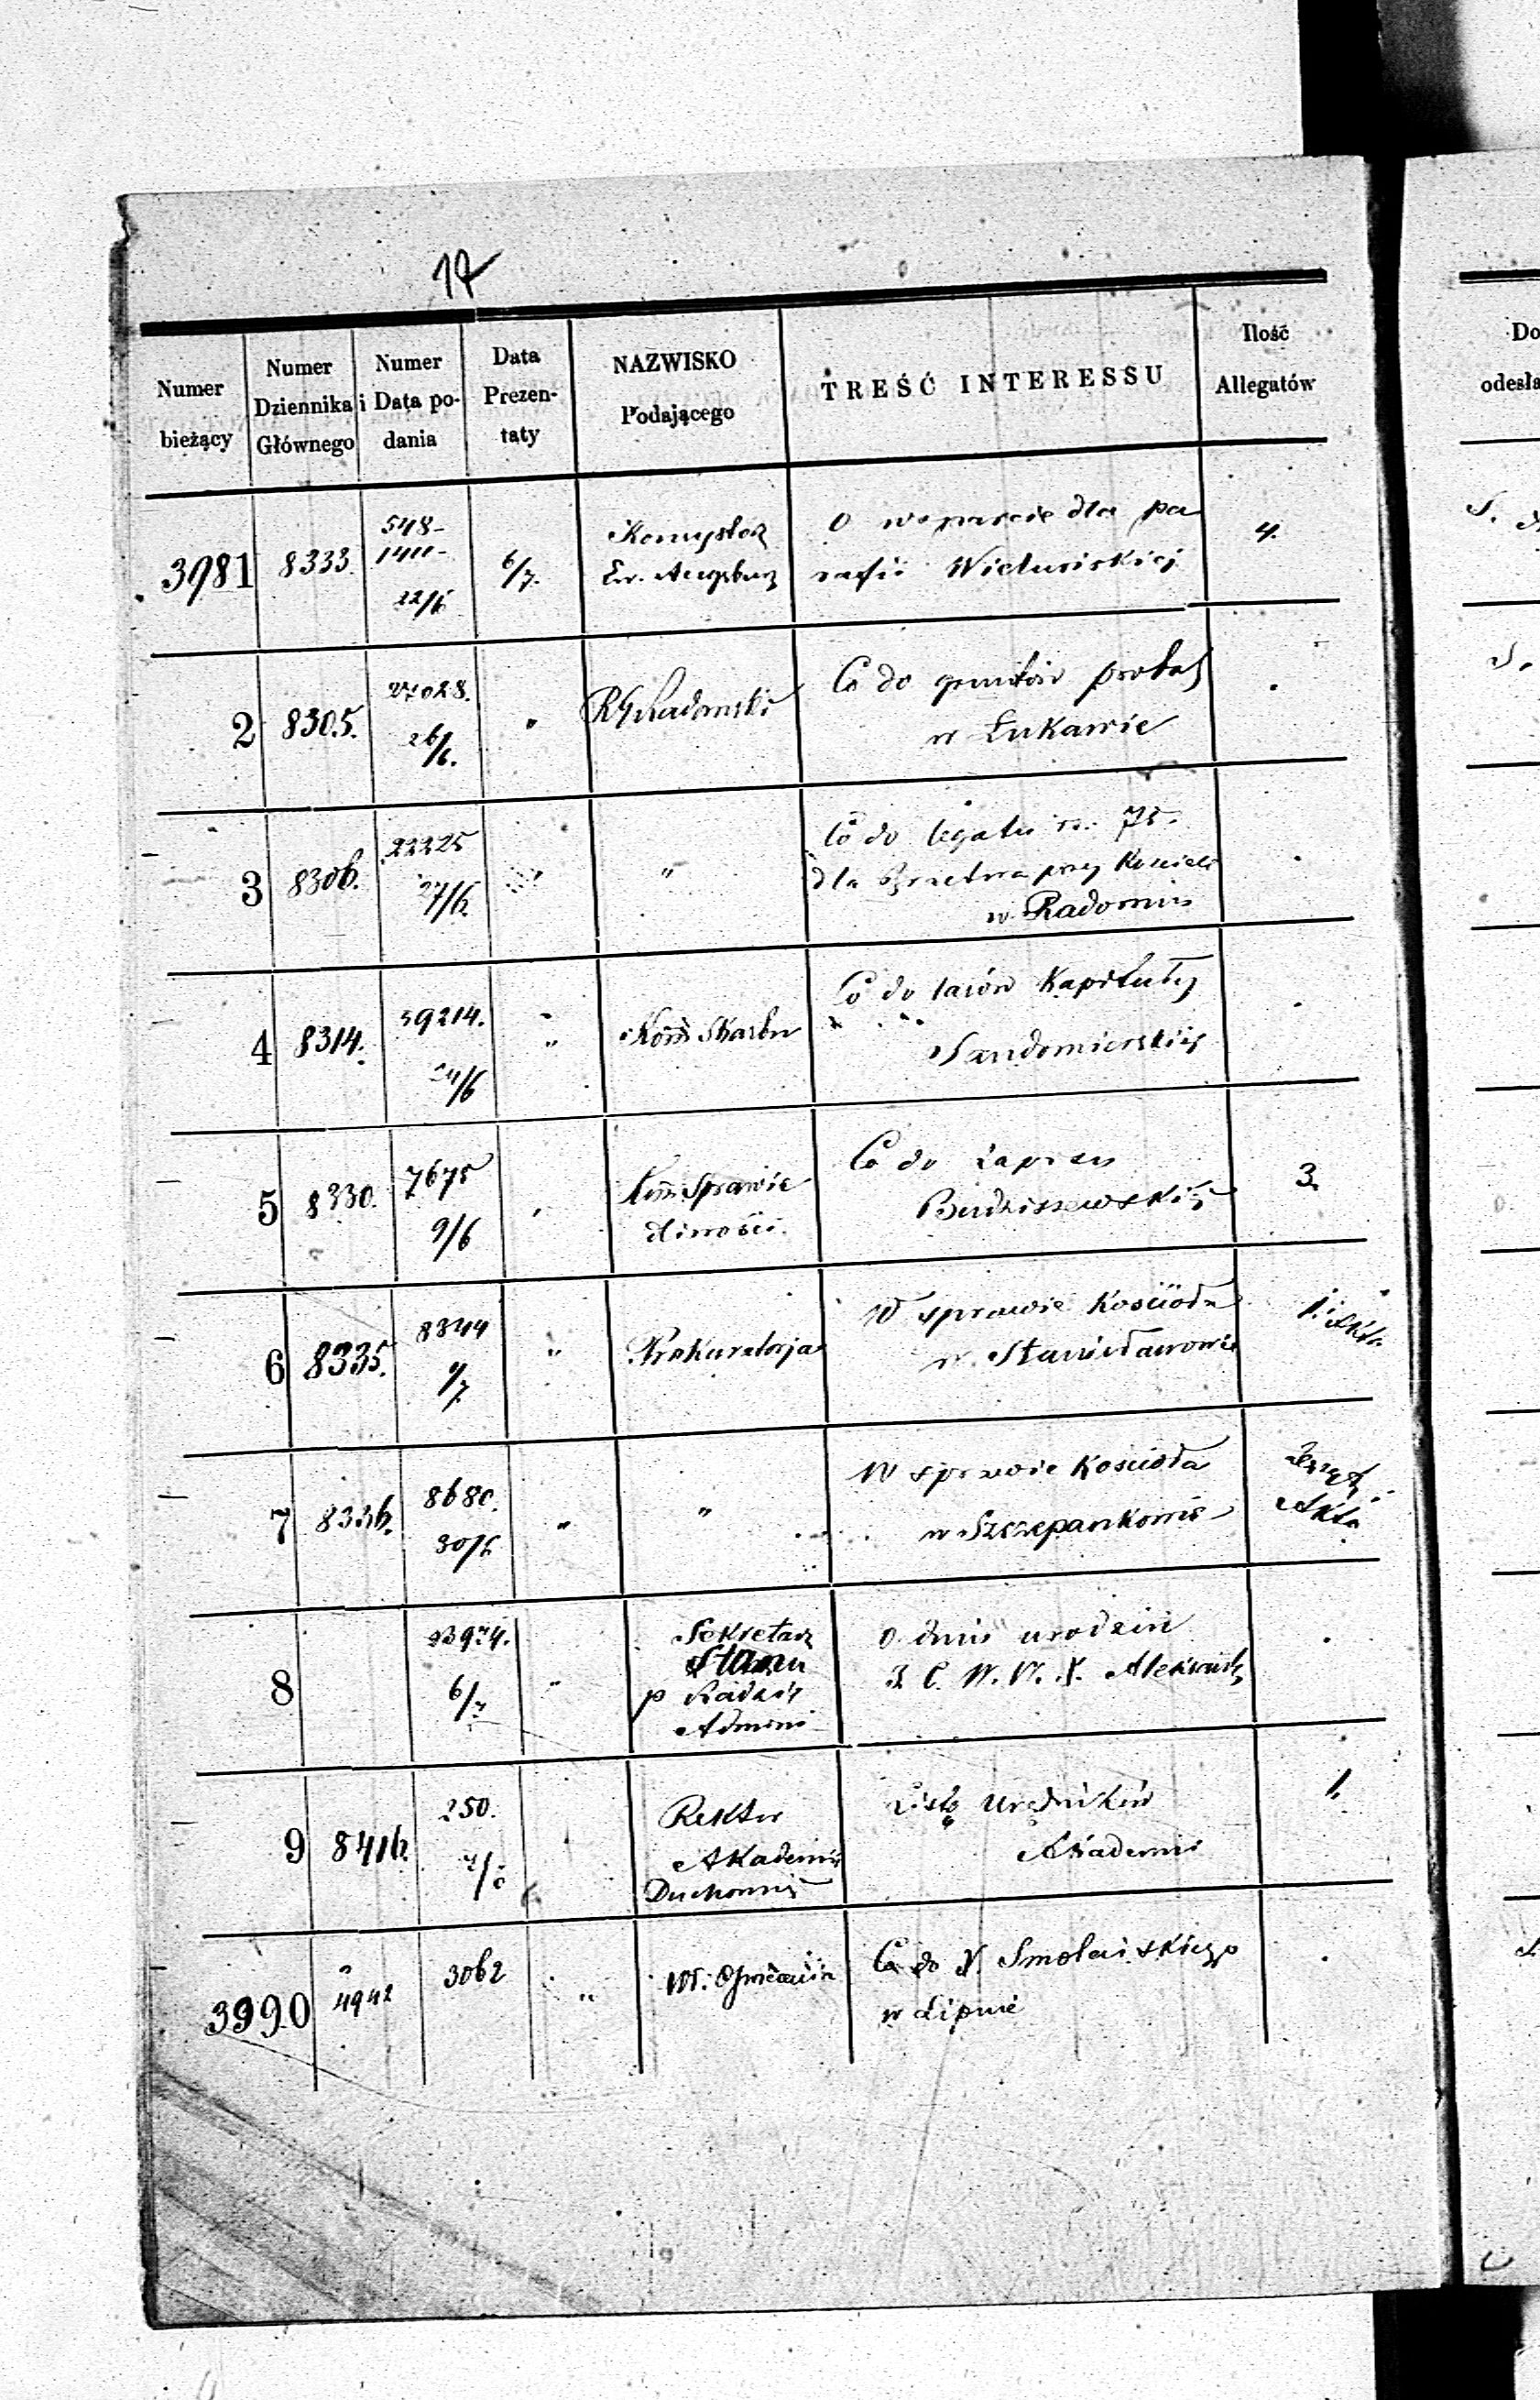 17
Numer bieżący
Numer Dziennika Głównego
Numer i Data podania
Data Prezentaty
NAZWISKO Podającego
TREŚĆ INTERESSU
Ilość Allegatów
3981 8333. 548- 6/7. Konsystorz O wsparcie dla pa 4.
1411- Ew. Augsburg rafii Wieluńskiej
22/6
2 8305. 27028. " RG Radomski Co do gruntów prob
26/6. w Łukawie
3 8306. 22225 " " Co do legatu rs. 75.
27/6. dla Bractwa przy Kościele
w Radomiu
4 8314. 39214. " Kom Skarbu Co do lasów Kapituły
24/6 Sandomierskiej
5 8330. 7675 " Kom. Sprawie Co do zapisu 3.
9/6 dliwości. Budziszewskiej
6 8335. 8344 " Prokuratorja W sprawie Kościoła 1. Akta.
w Stanisławowie
7 8336. 8680. " " W sprawie Kościoła Akta
30/6 w Szczepankowie
8 " Sekretarz O dniu urodzin
6/7 Stanu J. C. W. W. X. Aleksand
p Radzie
Admini
9 8416. 250. Rektor Listę urzędników 1.
Akademii Akademii
Duchownej
3990 4942 3062 " Co do X. Smoleńskiego
w Lipnie
Do
odesła